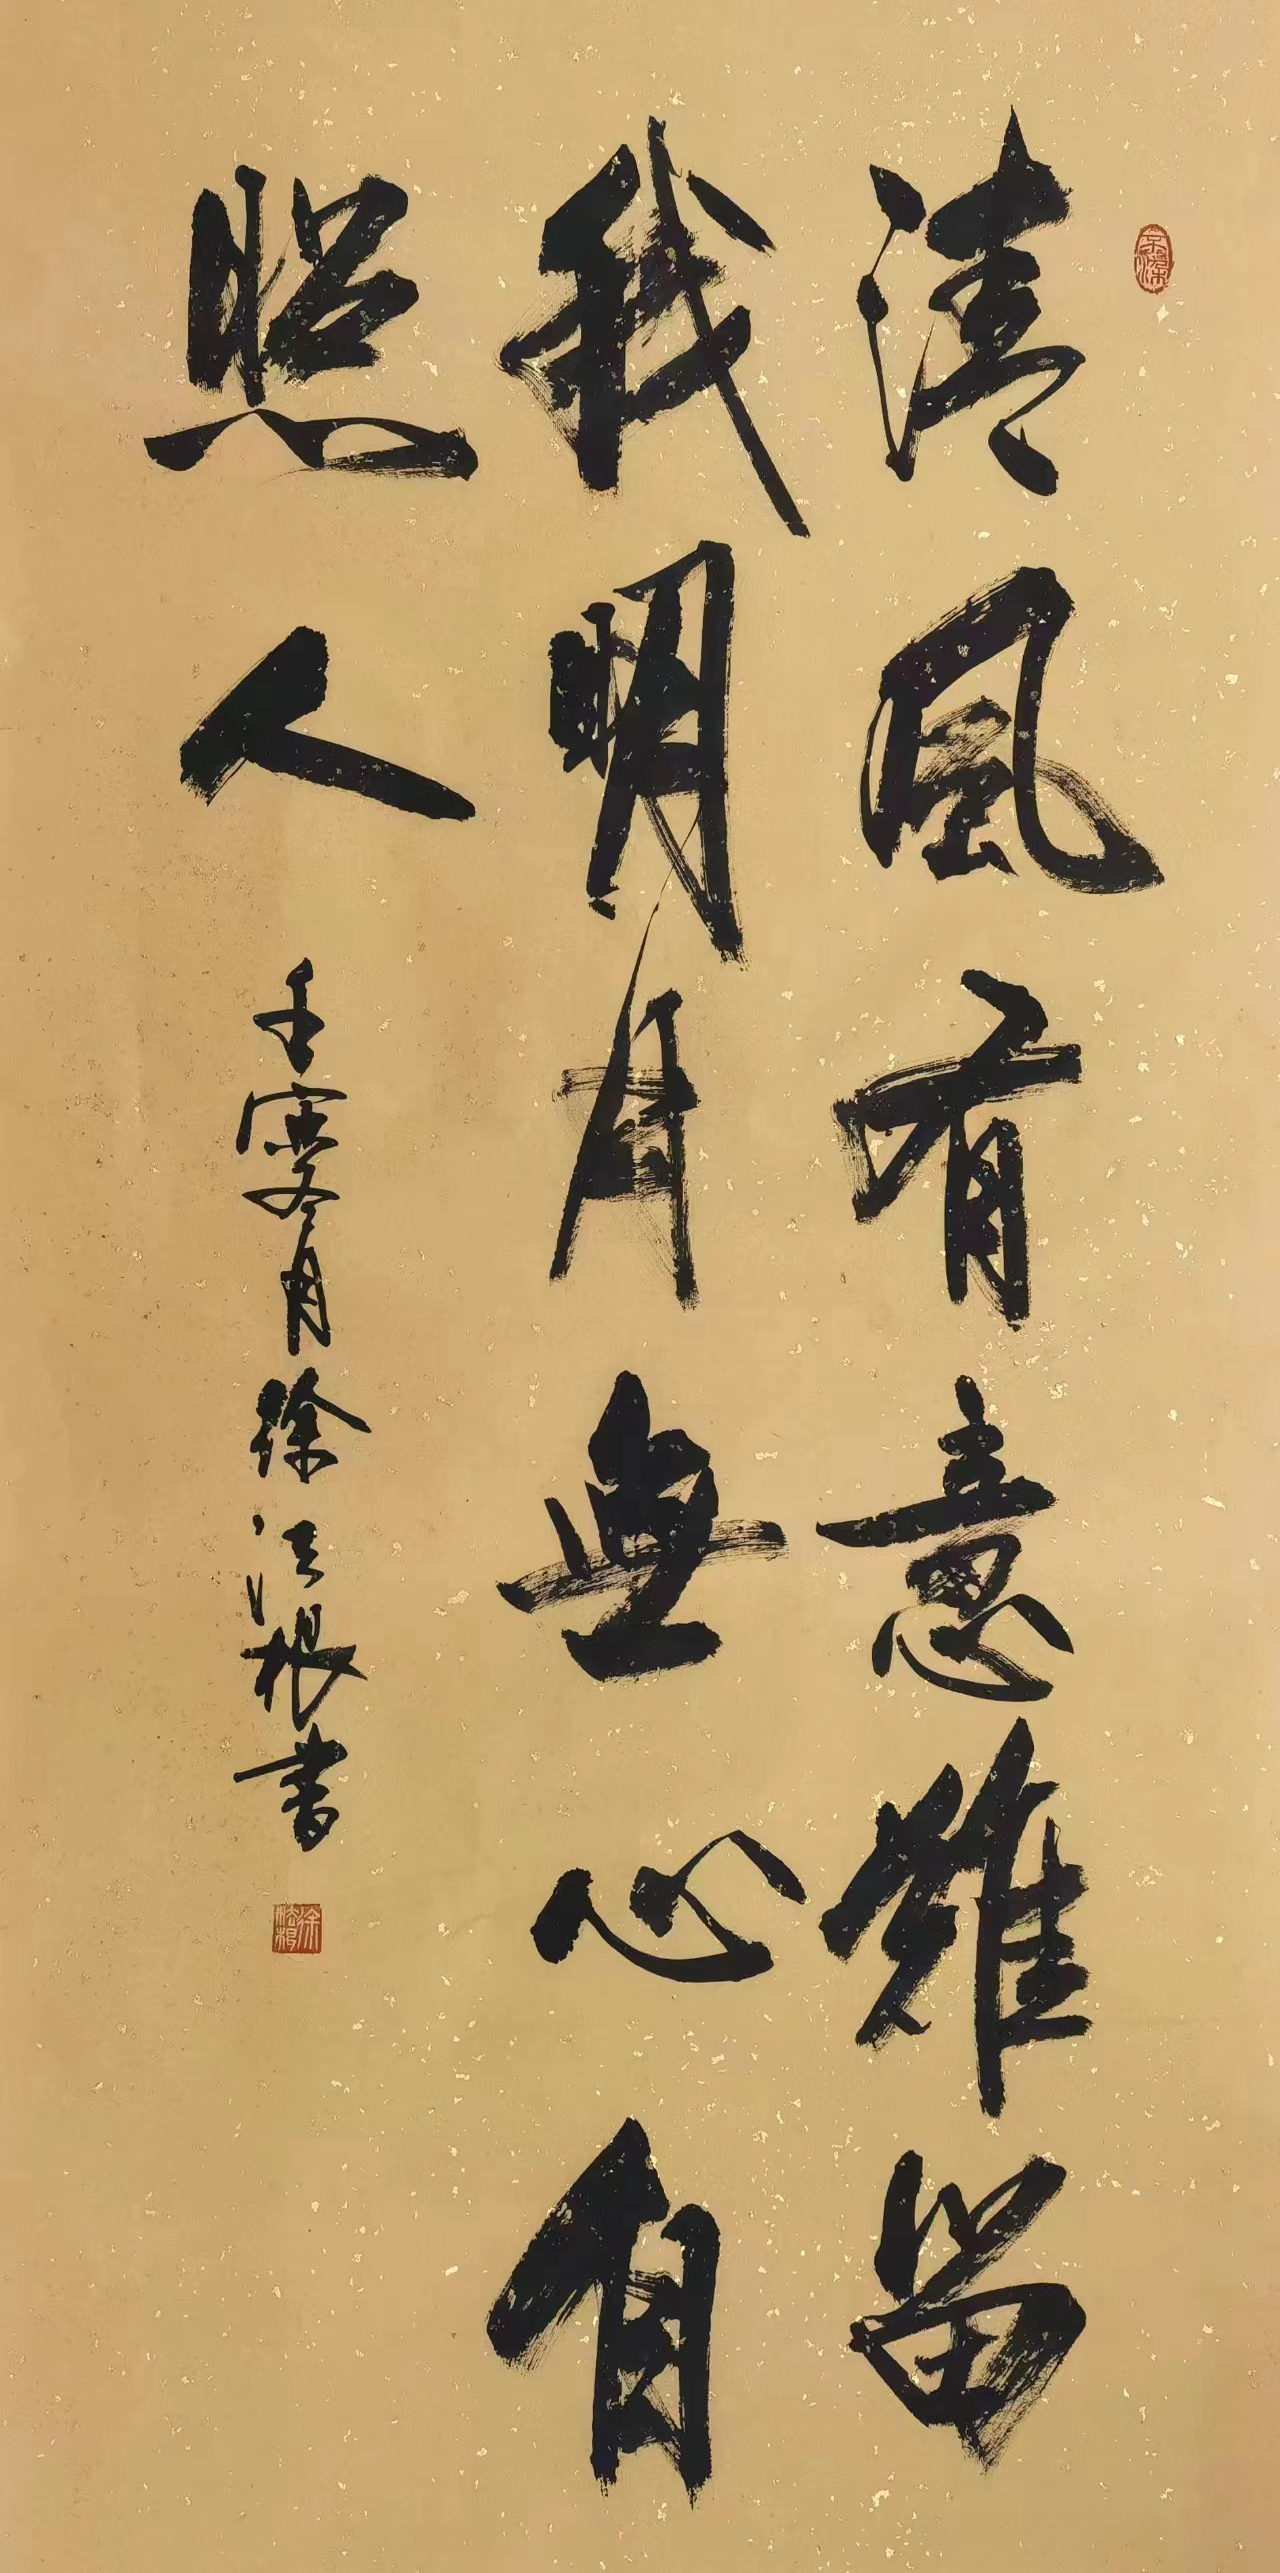 清風有意難留
我明月無心自
照人
壬寅冬月徐法根書
徐法根